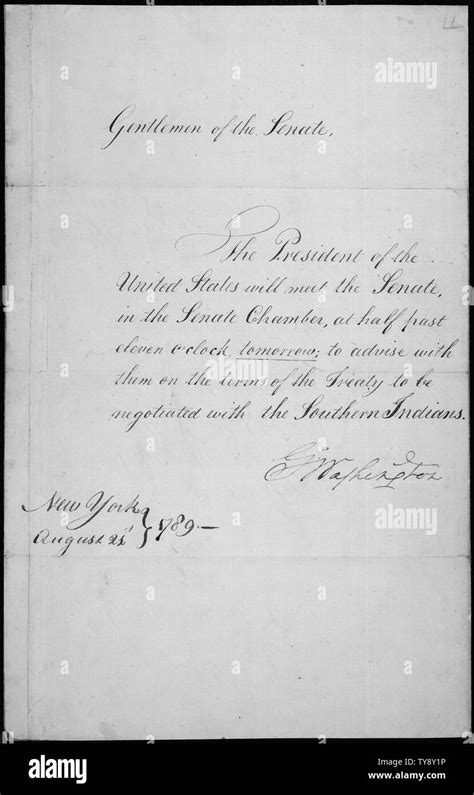 1
Gentlemen of the Senate,
The President of the
United States will meet the Senate,
in the Senate Chamber, at half past
eleven o'clock, tomorrow; to advise with
them on the terms of the Treaty to be
negotiated with the Southern Indians.
Go Washington
New York
August 21st } 1789—
alamy
alamy
Image ID: TY8Y1P
www.alamy.com